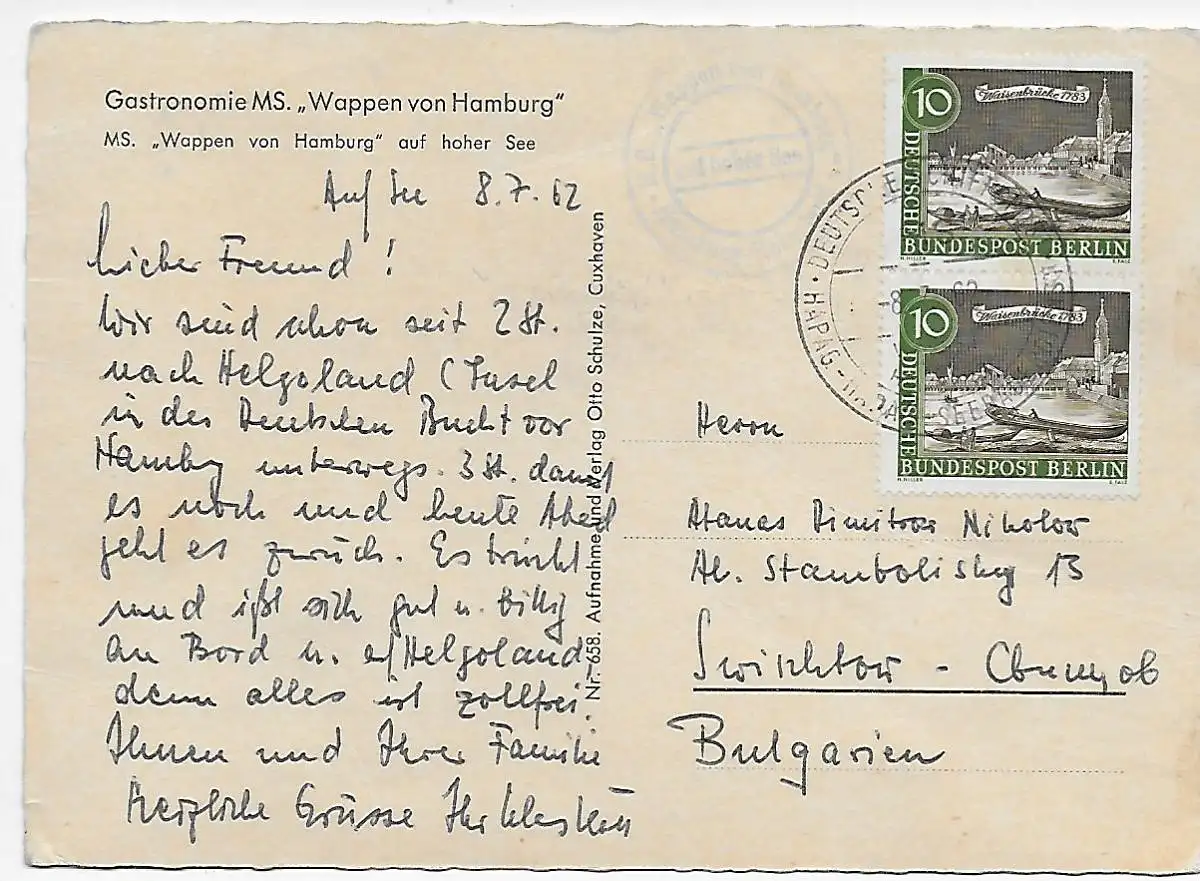 Gastronomie MS. „Wappen von Hamburg"
MS. „Wappen von Hamburg" auf hoher See
Auf See 8.7.62
Lieber Freund!
Wir sind schon seit 2 St.
nach Helgoland (Insel
in der Deutschen Bucht vor
Hamburg unterwegs. 3 St. dauert
es noch und heute Abend
geht es zurück. Es trinkt
und ißt sich gut u. billig
an Bord u. auf Helgoland,
denn alles ist zollfrei.
Ihnen und Ihrer Familie
Herzliche Grüsse Ihr
Nr. 658. Aufnahme und Verlag Otto Schulze, Cuxhaven
10
Waisenbrücke 1783
DEUTSCHE
BUNDESPOST BERLIN
H. HILLER E. FALZ
10
Waisenbrücke 1783
DEUTSCHE
BUNDESPOST BERLIN
H. HILLER E. FALZ
DEUTSCHE SCHIFFSPOST
HAPAG
-8. 62
Herrn
Atanas Dimitrov Nikolow
Al. Stambolisky 13
Swischtow - Свищов
Bulgarien